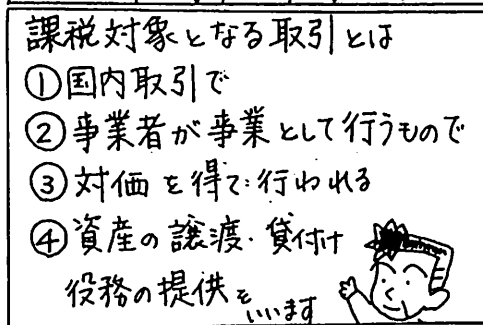 課税対象となる取引とは
①国内取引で
②事業者が事業として行うもので
③対価を得て行われる
④資産の譲渡・貸付け
役務の提供をいいます